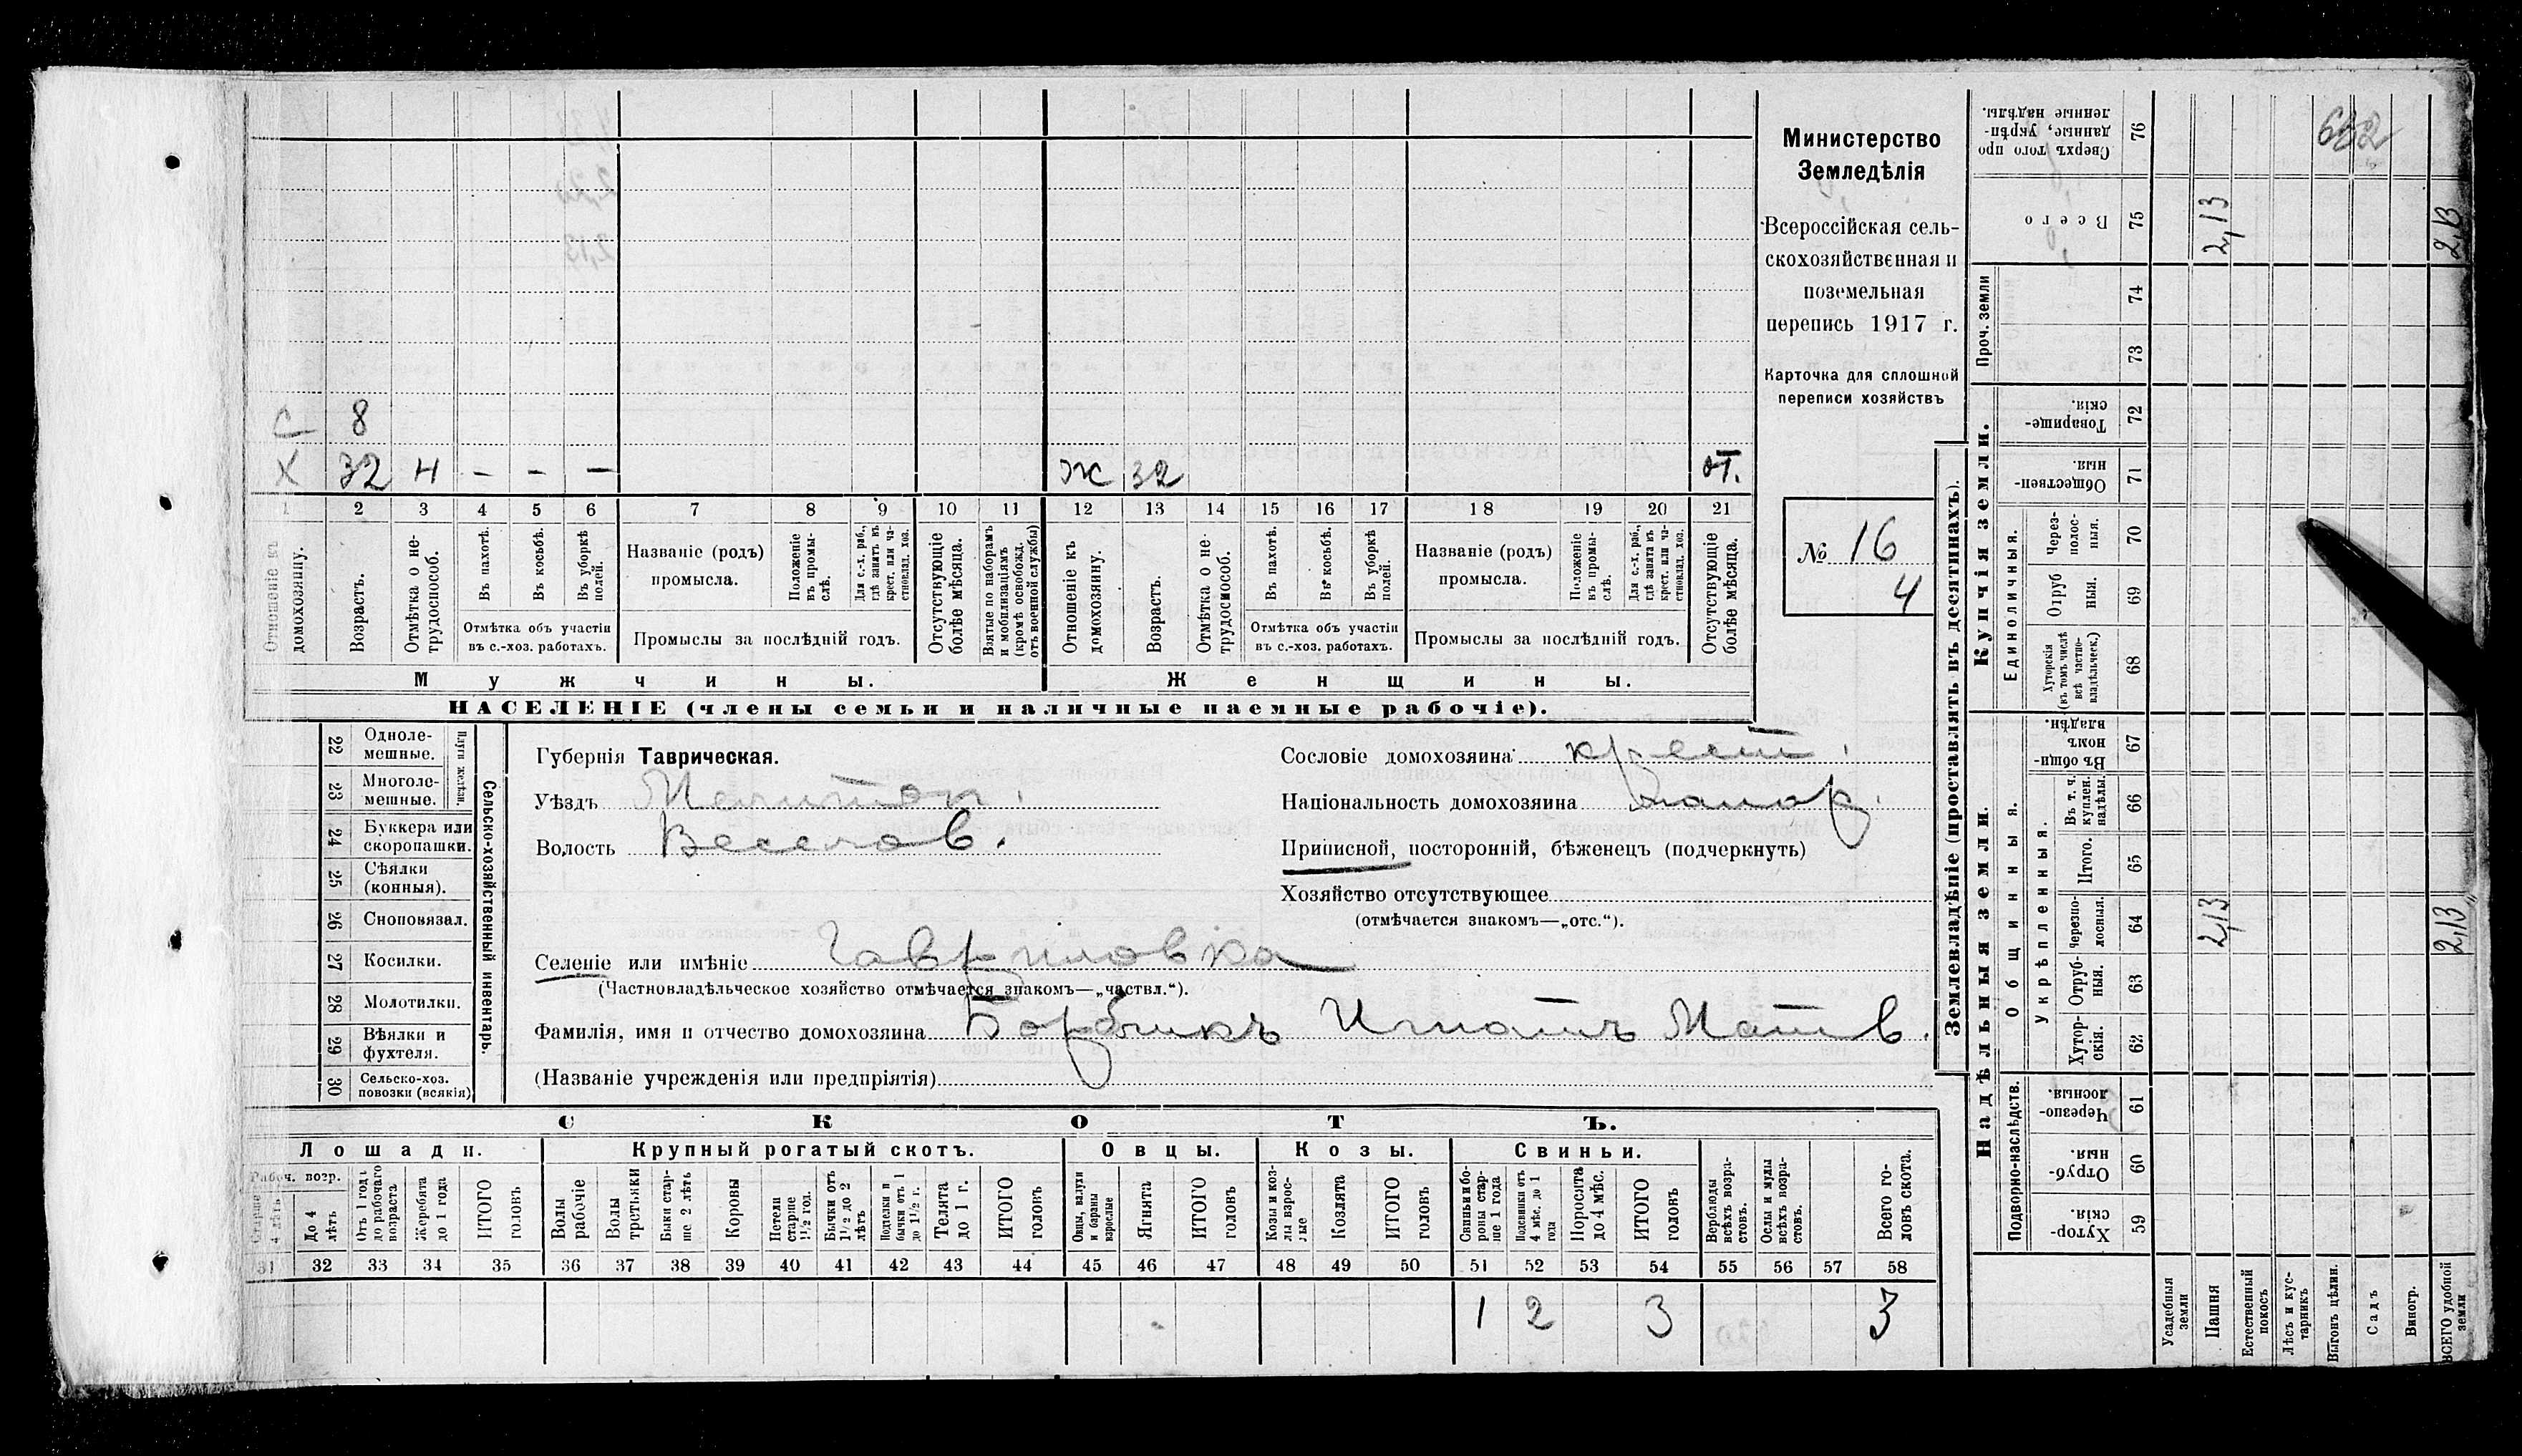 Министерство
Земледѣлія
Всероссійская сель-
скохозяйственная и
поземельная
перепись 1917 г.
Карточка для сплошной
переписи хозяйствъ
№ 16
4
С 8
Х 32 н - - -
Ж 32 от.
1 2 3 4 5 6 7 8 9 10 11 12 13 14 15 16 17 18 19 20 21
Отношеніе къ домохозяину.
Возрастъ.
Отмѣтка о не-трудоспособ.
Въ пахотѣ.
Въ косьбѣ.
Въ уборкѣ полей.
Отмѣтка объ участіи
въ с.-хоз. работахъ.
Названіе (родъ)
промысла.
Положеніе въ промы-слѣ.
Для с.-х. раб., гдѣ занятъ въ крест. или ча-стновлад. хоз.
Промыслы за послѣдній годъ.
Отсутствующіе болѣе мѣсяца.
Взятые по наборамъ и мобилизаціямъ (кромѣ освобожд. отъ военной службы)
Отношеніе къ домохозяину.
Возрастъ.
Отмѣтка о не-трудоспособ.
Въ пахотѣ.
Въ косьбѣ.
Въ уборкѣ полей.
Отмѣтка объ участіи
въ с.-хоз. работахъ.
Названіе (родъ)
промысла.
Положеніе въ промы-слѣ.
Для с.-х. раб., гдѣ занята въ крест. или ча-стновлад. хоз.
Промыслы за послѣдній годъ.
Отсутствующіе болѣе мѣсяца.
Мужчины. Женщины.
НАСЕЛЕНІЕ (члены семьи и наличные наемные рабочіе).
Сельско-хозяйственный инвентарь.
Плуги желѣзн.
22 Одноле-мешные.
23 Многоле-мешные.
24 Буккера или скоропашки.
25 Сѣялки (конныя).
26 Сноповязал.
27 Косилки.
28 Молотилки.
29 Вѣялки и фухтеля.
30 Сельско-хоз. повозки (всякія)
Губернія Таврическая.
Уѣздъ Мелитоп.
Волость Веселов.
Селеніе или имѣніе Гавриловка
(Частновладѣльческое хозяйство отмѣчается знакомъ—„частвл.“).
Фамилія, имя и отчество домохозяина Игнатъ Матв.
(Названіе учрежденія или предпріятія)
Сословіе домохозяина: крест.
Національность домохозяина малор.
Приписной, посторонній, бѣженецъ (подчеркнуть)
Хозяйство отсутствующее
(отмѣчается знакомъ—„отс.“).
СКОТЪ.
Лошади. Крупный рогатый скотъ. Овцы. Козы. Свиньи.
Рабоч. возр.
Старше 4 лѣтъ
До 4 лѣтъ
Отъ 1 года до рабочаго возраста
Жеребята до 1 года
ИТОГО головъ
Волы рабочіе
Волы третьяки
Быки стар-ше 2 лѣтъ
Коровы
Нетели старше 1½ год.
Бычки отъ 1½ до 2 лѣтъ
Подтелки и бычки отъ 1 до 1½ г.
Телята до 1 г.
ИТОГО головъ
Овцы, валухи и бараны взрослые
Ягнята
ИТОГО головъ
Козы и коз-лы взрос-лые
Козлята
ИТОГО головъ
Свиньи и бо-ровы стар-ше 1 года
Подсвинки отъ 4 мѣс. до 1 года
Поросята до 4 мѣс.
ИТОГО головъ
Верблюды всѣхъ возра-стовъ.
Ослы и мулы всѣхъ возра-стовъ.
Всего го-ловъ скота.
31 32 33 34 35 36 37 38 39 40 41 42 43 44 45 46 47 48 49 50 51 52 53 54 55 56 57 58
1 2 3 3
Землевладѣніе (проставлять въ десятинахъ).
Надѣльныя земли.
Подворно-наслѣдств.
Хутор-скія. 59
Отруб-ныя. 60
Черезпо-лосныя. 61
Общинныя.
Укрѣпленныя.
Хутор-скія. 62
Отруб-ныя. 63
Черезпо-лосныя. 64
Итого. 65
Въ т. ч. куплен. надѣлы. 66
Въ общин-номъ владѣн. 67
Купчія земли.
Единоличныя.
Хуторскія (въ томъ числѣ всѣ частно-владѣльческ.) 68
Отруб-ныя. 69
Через-полос-ныя. 70
Обществен-ныя. 71
Товарище-скія. 72
Проч. земли
73
74
Всего 75
Сверхъ того про-данные, укрѣп-ленные надѣлы. 76
Усадебныя земли
Пашня 2,13 2,13
Естественный покосъ
Лѣсъ и кус-тарникъ
Выгонъ цѣлин.
Садъ
Виногр.
ВСЕГО удобной земли 2,13 2,13